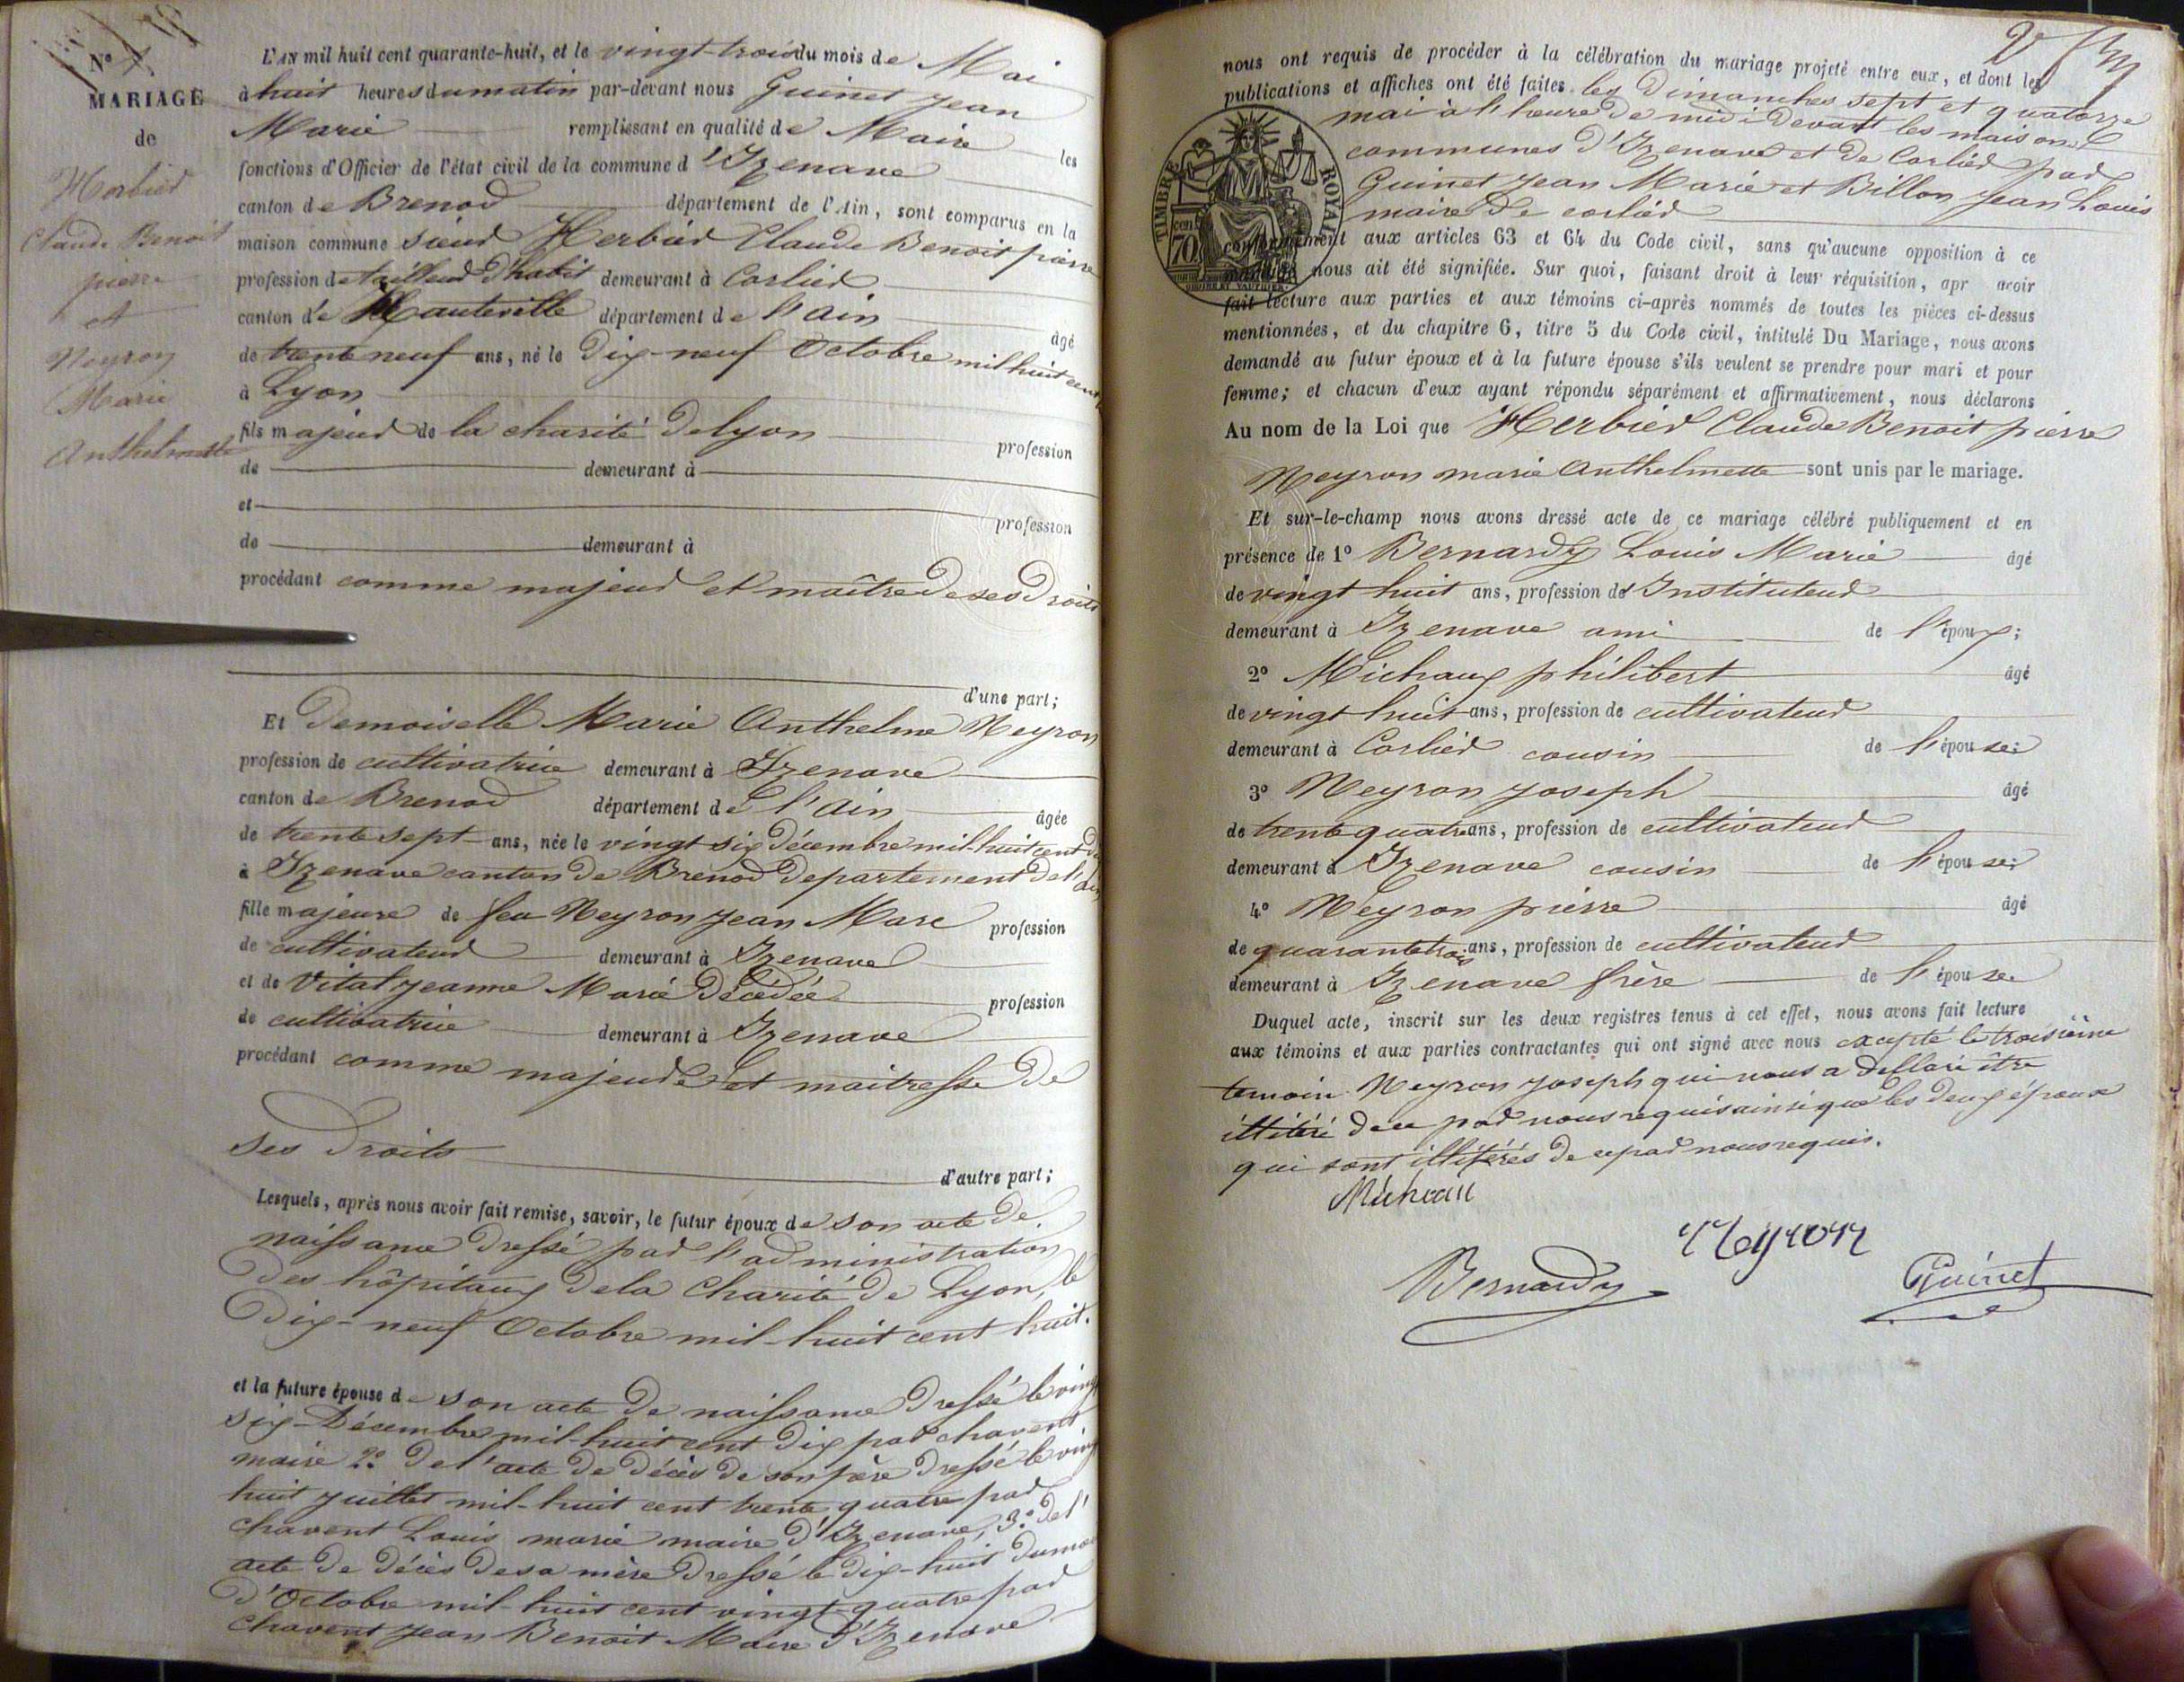 N° 4
MARIAGE
de
Herbier
Claude Benoit
pierre
et
Neyron
Marie
Anthelmette
L'AN mil huit cent quarante-huit, et le vingt-trois du mois de Mai
à huit heures du matin par-devant nous Guinet Jean
Marie remplissant en qualité de Maire les
fonctions d'Officier de l'état civil de la commune d'Izenave
canton de Brenod département de l'Ain, sont comparus en la
maison commune sieur Herbier Claude Benoit pierre
profession de tailleur d'habit demeurant à Corlier
canton de Hauteville département de l'Ain âgé
de trente neuf ans, né le Dix-neuf Octobre mil huit cent
à Lyon
fils majeur de la charité de lyon profession
de demeurant à
et profession
de demeurant à
procédant comme majeur et maître de ses Droits
d'une part;
Et Demoiselle Marie Anthelme Neyron
profession de cultivatrice demeurant à Izenave
canton de Brenod département de l'Ain âgée
de trente sept ans, née le vingt six décembre mil-huit cent di
à Izenave canton de Brenod Departement de l'Ain
fille majeure de feu Neyron Jean Marc profession
de cultivateur demeurant à Izenave
et de Vital Jeanne Marie Décédée profession
de cultivatrice demeurant à Izenave
procédant comme majeure et maitresse De
ses Droits
d'autre part;
Lesquels, après nous avoir fait remise, savoir, le futur époux de son acte De
naissance Dressé par l'administration
Des hôpitaux de la Charité De Lyon, le
Dix-neuf Octobre mil-huit cent huit.
et la future épouse de son acte De naissance Dressé le vingt
six Décembre mil-huit cent Dix par chavent
maire 2° De l'acte De Décès De son père Dressé le vingt
huit juillet mil-huit cent trente quatre par
chavent Louis marie maire d'Izenave, 3° De l'
acte De Décès De sa mère Dressé le Dix-huit Du mois
D'Octobre mil-huit cent vingt-quatre par
chavent Jean Benoit Maire D'Izenave
nous ont requis de procéder à la célébration du mariage projeté entre eux, et dont les
publications et affiches ont été faites les Dimanches sept et quatorze
mai à l'heure De midi Devant les maisons
communes D'Izenave et De Corlier par
Guinet Jean Marie et Billon Jean Louis
maire De corlier
TIMBRE ROYAL
70 cent
conformément aux articles 63 et 64 du Code civil, sans qu'aucune opposition à ce
mariage nous ait été signifiée. Sur quoi, faisant droit à leur réquisition, apr avoir
fait lecture aux parties et aux témoins ci-après nommés de toutes les pièces ci-dessus
mentionnées, et du chapitre 6, titre 5 du Code civil, intitulé Du Mariage, nous avons
demandé au futur époux et à la future épouse s'ils veulent se prendre pour mari et pour
femme; et chacun d'eux ayant répondu séparément et affirmativement, nous déclarons
Au nom de la Loi que Herbier Claude Benoit pierre
Neyron marie Anthelmette sont unis par le mariage.
Et sur-le-champ nous avons dressé acte de ce mariage célébré publiquement et en
présence de 1° Bernardy Louis Marie âgé
de vingt huit ans, profession d'Instituteur
demeurant à Izenave ami de l'époux;
2° Michaux philibert âgé
de vingt huit ans, profession de cultivateur
demeurant à Corlier cousin de l'épouse;
3° Neyron Joseph âgé
de trente quatre ans, profession de cultivateur
demeurant à Izenave cousin de l'épouse;
4° Neyron pierre âgé
de quarante trois ans, profession de cultivateur
demeurant à Izenave frère de l'épouse
Duquel acte, inscrit sur les deux registres tenus à cet effet, nous avons fait lecture
aux témoins et aux parties contractantes qui ont signé avec nous excepté le troisième
temoin Neyron Joseph qui nous a Dellaré être
illitéré de ce par nous requis ainsi que les Deux époux
qui sont illitérés De ce par nous requis.
Michaux
Neyron
Bernardy
Guinet